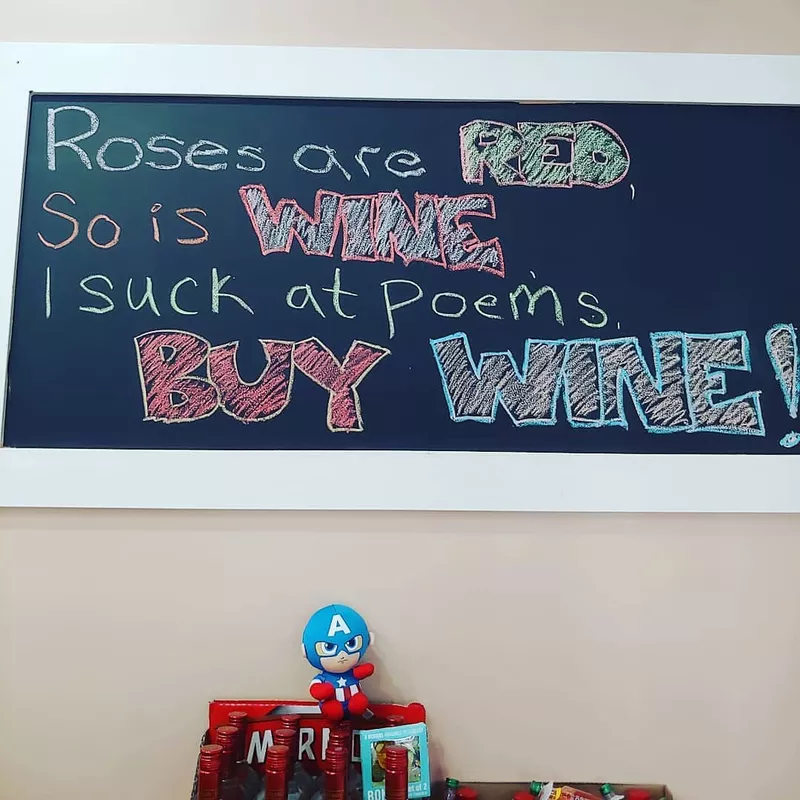 Roses are RED,
So is WINE
I suck at poems.
BUY WINE!
A